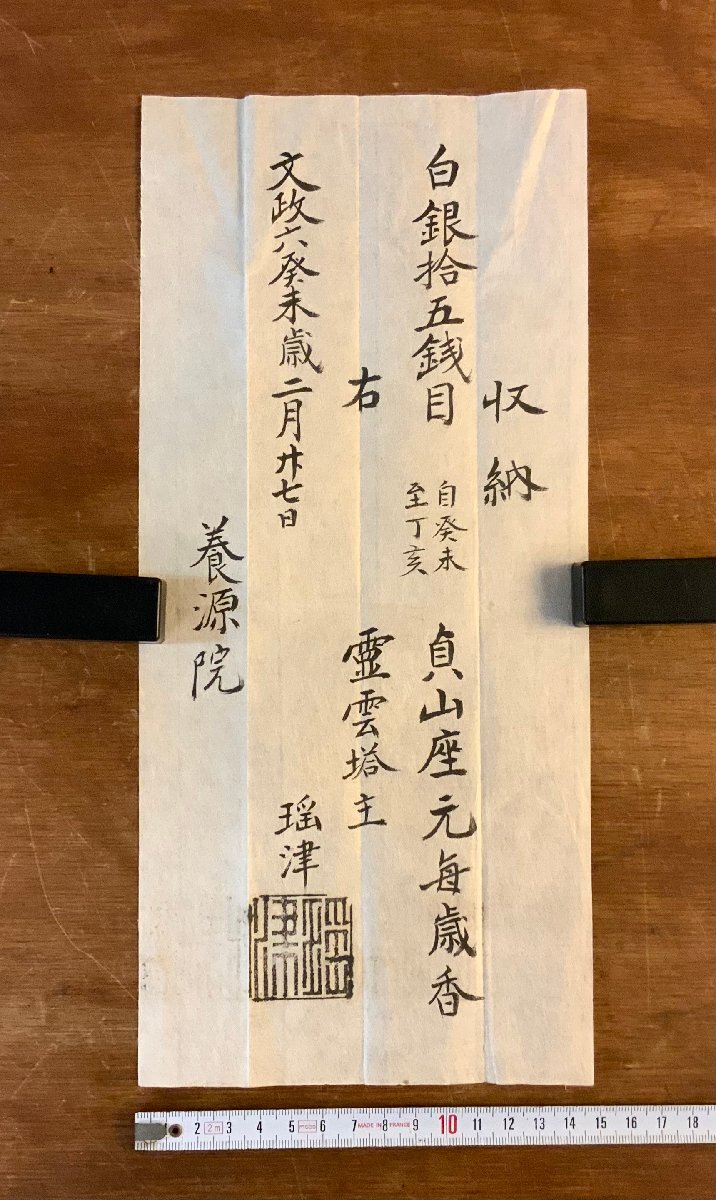 収納
白銀拾五銭目 自癸未至丁亥 貞山座元毎歳香
右 霊雲塔主
文政六癸未歳二月廿七日 瑶津
瑶津
養源院
2 2m 3 4 5 mabo 6 7 MADE IN FRANCE 8 9 10 11 12 13 14 15 16 17 18